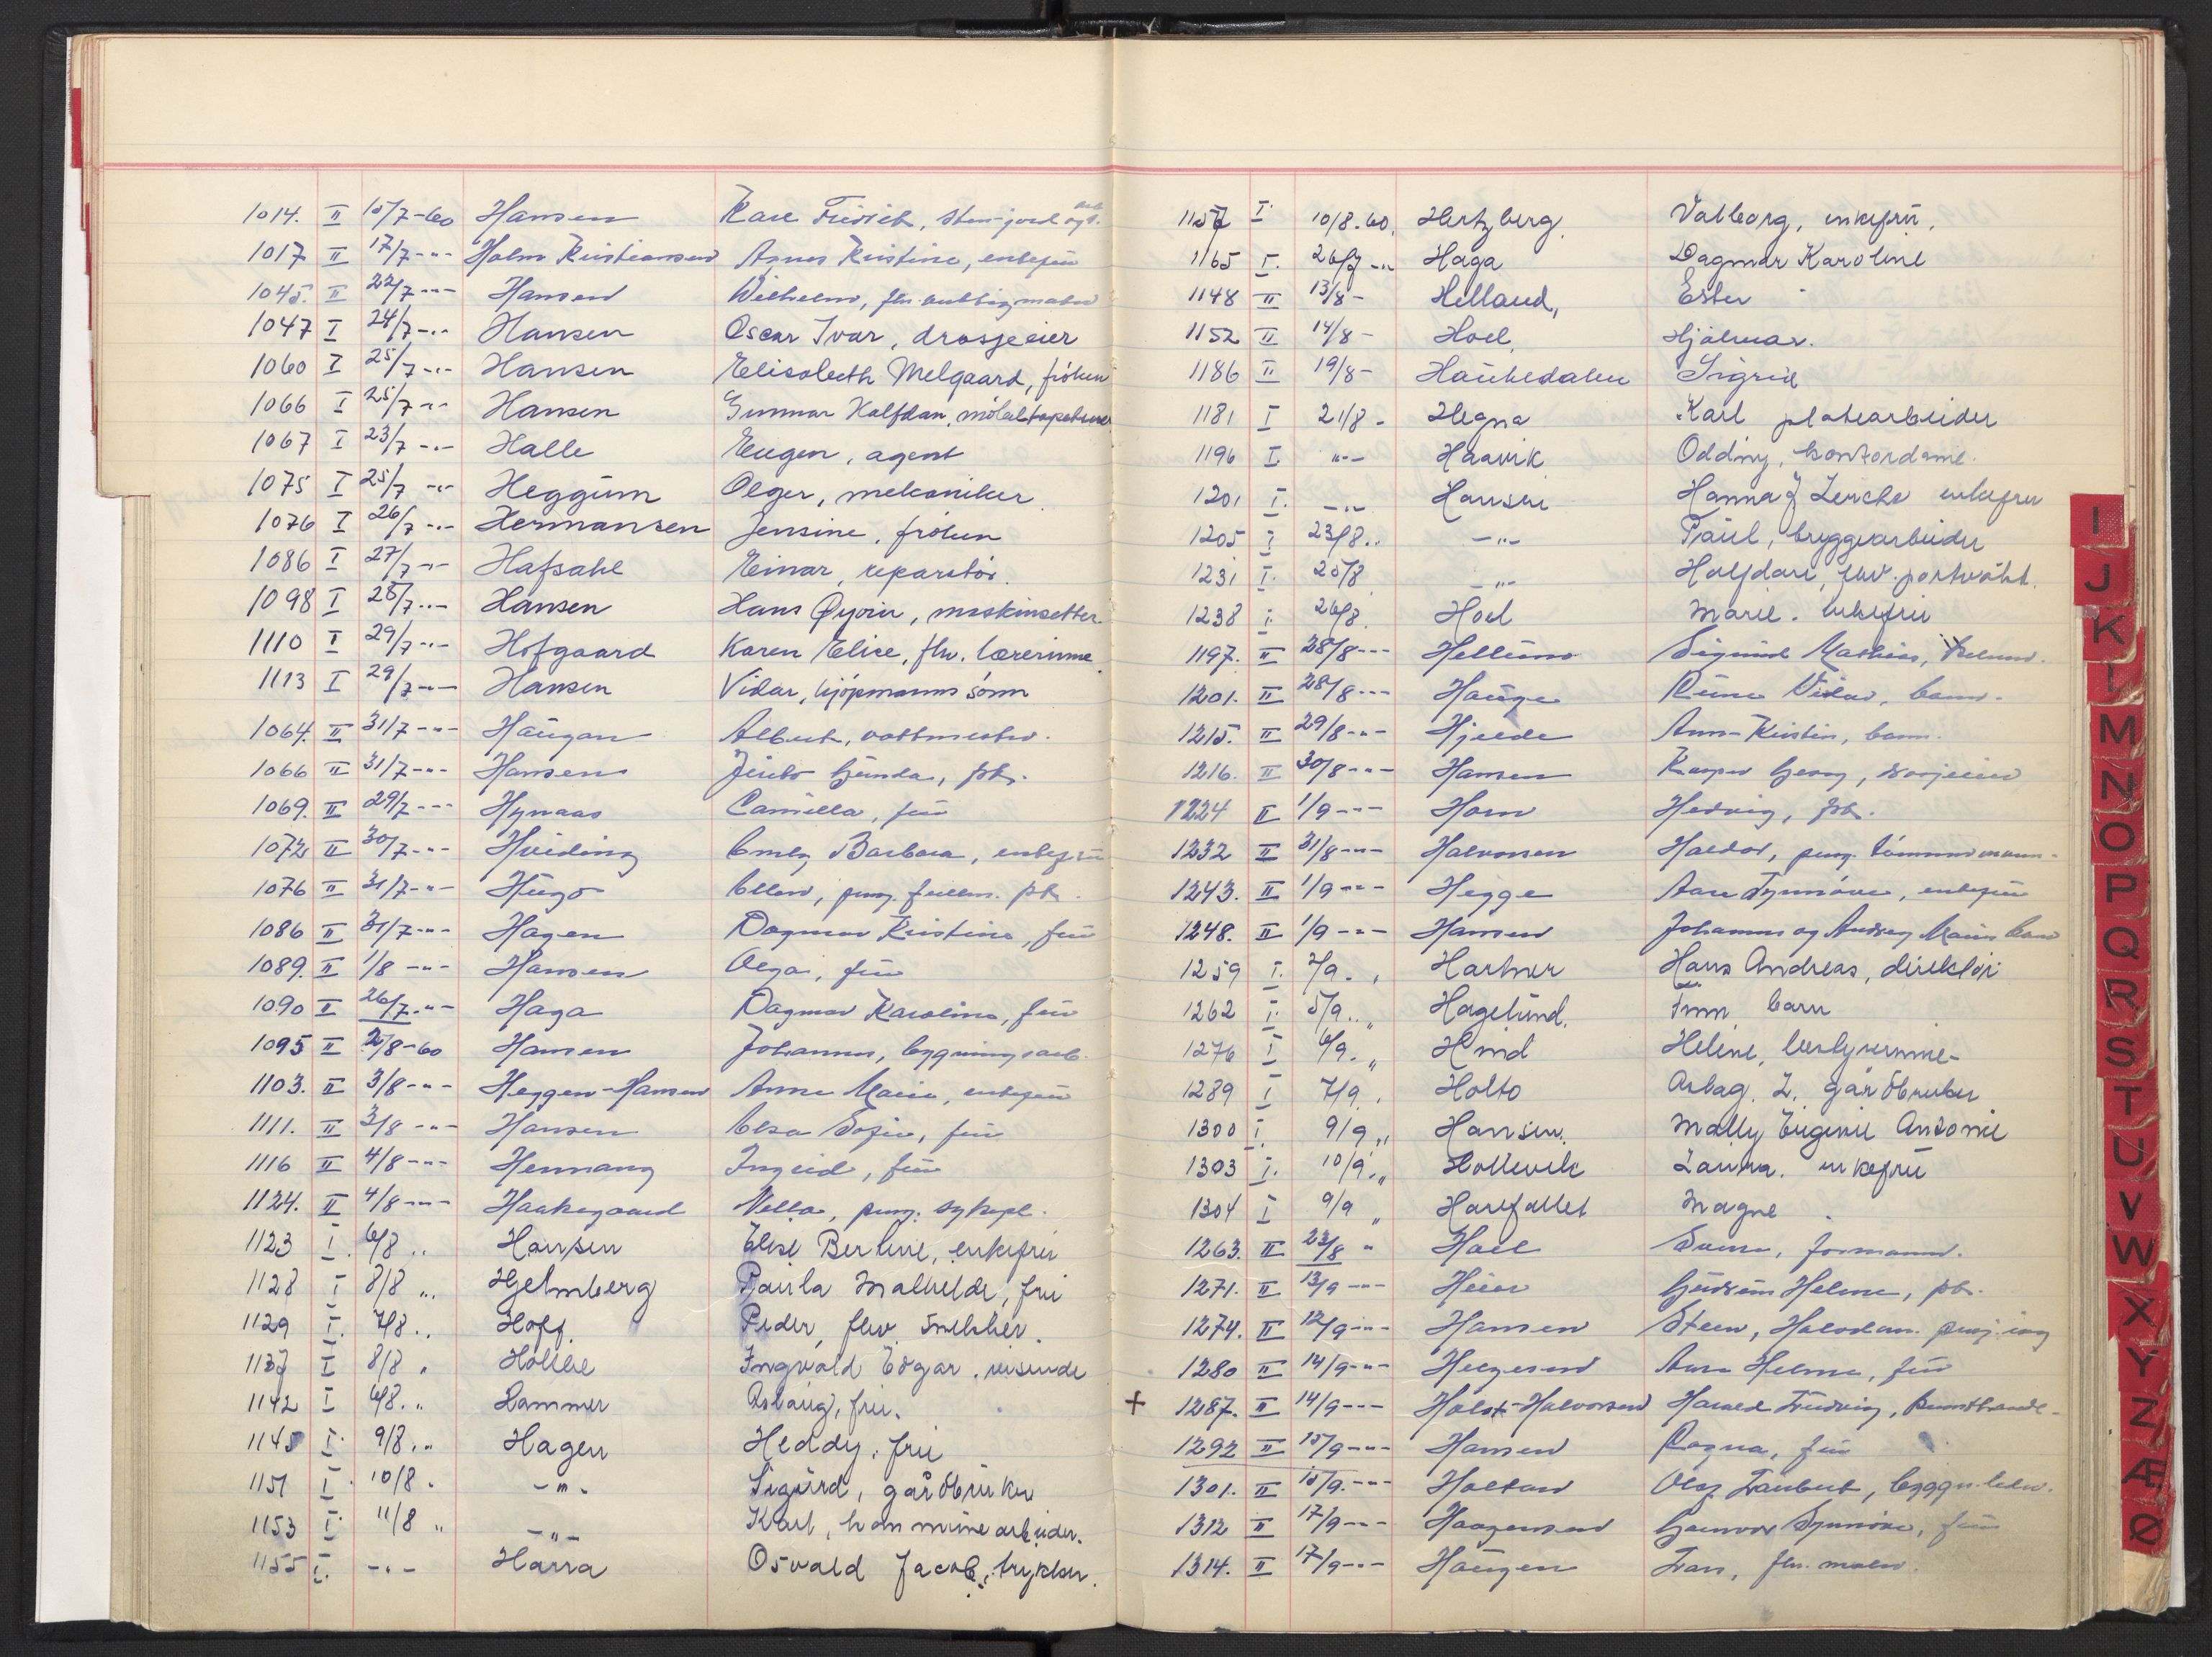 1014. II 10/7-60 Hansen Kare Fridrik,
1017 II 17/7-"- Holm Kristiansen Agnes Kristine, enkefru
1045. II 22/7-"- Hansen Wilhelm, fhv.
1047 I 24/7-"- Hansen Oscar Ivar, drosjeeier
1060 I 25/7-"- Hansen Elisabeth Melgaard, frøken
1066 I 25/7-"- Hansen Gunnar Halfdan,
1067 I 23/7-"- Halle Eugen, agent
1075 I 25/7-"- Heggum Olger, mekaniker
1076 I 26/7-"- Hermansen Jensine, frøken
1086 I 27/7-"- Hafsahl Einar, reparatør.
1098 I 28/7-"- Hansen Hans Øyvin, maskinsetter.
1110 I 29/7-"- Hofgaard Karen Elise, fhv. lærerinne
1113 I 29/7-"- Hansen Vidar, kjøpmanns sønn
1064. II 31/7-"- Haugan Albert, vaktmester.
1066 II 31/7-"- Hansen Gunda, frk.
1069. II 29/7-"- Hynaas Camilla, fru
1072 II 30/7-"- Hviding Emly Barbara, enkefru
1076 II 31/7-"- Hugo Ellen, pens. frk.
1086 II 31/7-"- Hagen Dagmar Kristine, fru
1089. II 1/8-"- Hansen Olga, fru
1090 II 26/7-"- Haga Dagmar Karoline, fru
1095 II 2/8-60 Hansen Johannes, bygningsarb.
1103. II 3/8-"- Heggen-Hansen Anne Marie, enkefru
1111. II 3/8-"- Hansen Elsa Sofie, fru
1116 II 4/8-"- Hennang Ingrid, fru
1124. II 4/8-"- Haakegaard Nella, pens. sykepl.
1123 I. 6/8 " Hansen Elise Berline, enkefru
1128 I 8/8 " Hjelmberg Paula Mathilde, fru
1129 I. 7/8 " Hoff. Peder, fhv.
1137 I 8/8 " Holthe Ingvald Edgar. reisende
1142 I 6/8. " Hammer Aslaug, fru.
1145 I. 9/8. " Hagen Heddy. fru
1151 I. 10/8. -"- Sigurd, gårdbruker
1153 I. 11/8 " -"- Karl, kommunearbeider.
1155 I. -"- Harra Osvald Jacob, trykker.
1157 I. 10/8.60. Hertzberg. Valborg, enkefru.
1165 I. 26/7 -"- Haga Dagmar Karoline
1148 II 13/8- Helland, Ester
1152 II 14/8- Hoel. Hjalmar.
1186 II 19/8- Haukedalen Sigrid
1181 I 21/8. Hegna Karl platearbeider
1196 I. "- Haavik Oddny, kontordame.
1201 I. -"- Hansen Hanna J Lerche enkefru
1205 I 23/8.. -"- Paul, bryggearbeider
1231 I. 25/8 -"- Halfdan, fhv.
1238 I. 26/8. Hoel Marie. enkefru
1197. II 28/8-"- Hellum Sigurd Mathias,
1201. II 28/8-"- Hauge Rune Vidar, barn.
1215. II 29/8-"- Hjelde Ann-Kristin, barn.
1216. II 30/8-"- Hansen Kasper Georg, drosjeeier
1224 II 1/9-"- Horn Hedvig, frk.
1232 II 31/8-"- Halvorsen Haldor, pens. tømmermann.
1243. II 1/9-"- Hegge Synnøve, enkefru
1248. II 1/9-"- Hansen Johannes og Audrey Marie barn
1259 I. 2/9. " Hartner Hans Andreas, direktør
1262 I. 5/9.. " Hagelund. Finn barn
1276 I 6/9. " Hvid Helene, bestyrerinne-
1289 I 7/9 . Holto Aslag. L. gårdbruker
1300 I. 9/9 " Hansen. Mally Eugenie Antonie
1303 I. 10/9. " Hollevik Laura. enkefru
1304 I 9/9 " Harefallet Magne
1263. II 23/8 " Hoel Svein, formann.
1271. II 13/9-"- Heier Gudrun Helene, frk.
1274. II 12/9-"- Hansen Steen,
1280 II 14/9-"- Helgesen Anna Helene, fru
+ 1287. II 14/9-"- Holst-Halvorsen Harald Ludvig, kunsthandl.
1292 II 15/9-"- Hansen Ragna, fru
1301. II 15/9.-"- Holtan
1312 II 17/9-"- Haagensen Gunvor Synnøve, fru
1314. II 17/9-"- Haugen fhv. maler.
I
J
K
L
M
N
O
P
Q
R
S
T
U
V
W
X
Y
Z
Æ
Ø